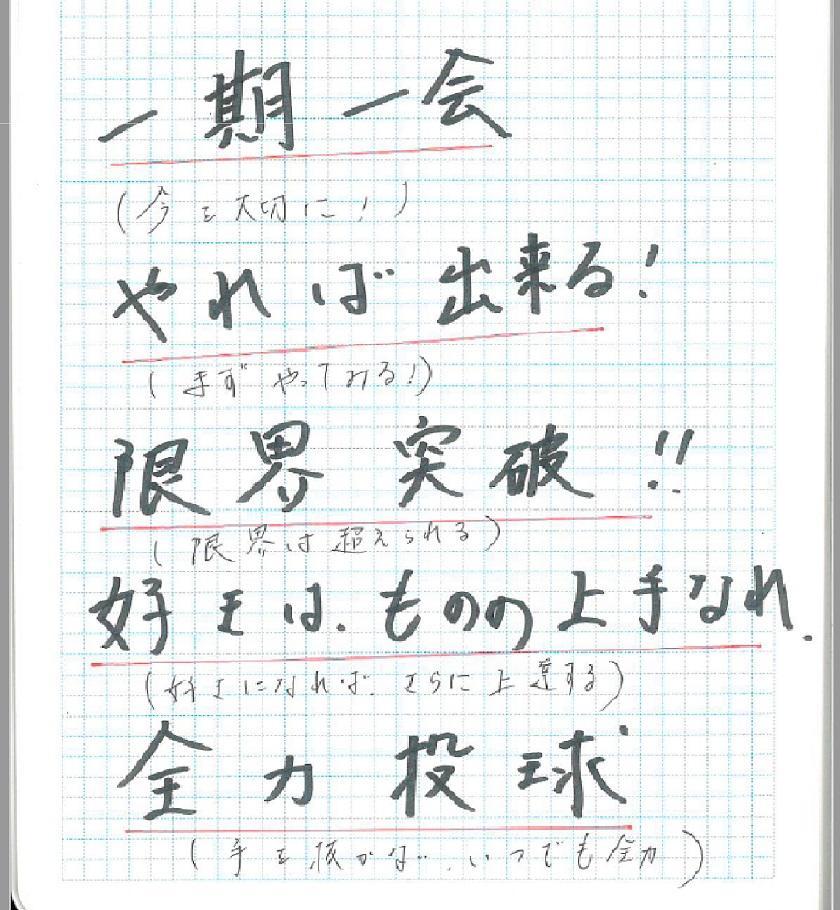 一期一会
(今を大切に!)
やれば出来る!
(まずやってみる!)
限界突破!!
(限界は超えられる)
好きは、ものの上手なれ.
(好きになれば、さらに上達する)
全力投球
(手を抜かない、いつでも全力)